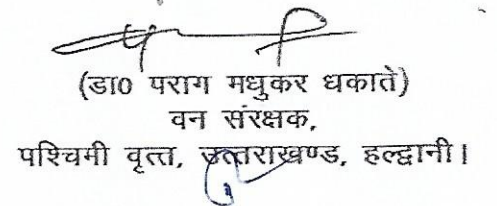 (डा0 पराग मधुकर धकाते)
वन संरक्षक,
पश्चिमी वृत्त, उत्तराखण्ड, हल्द्वानी।